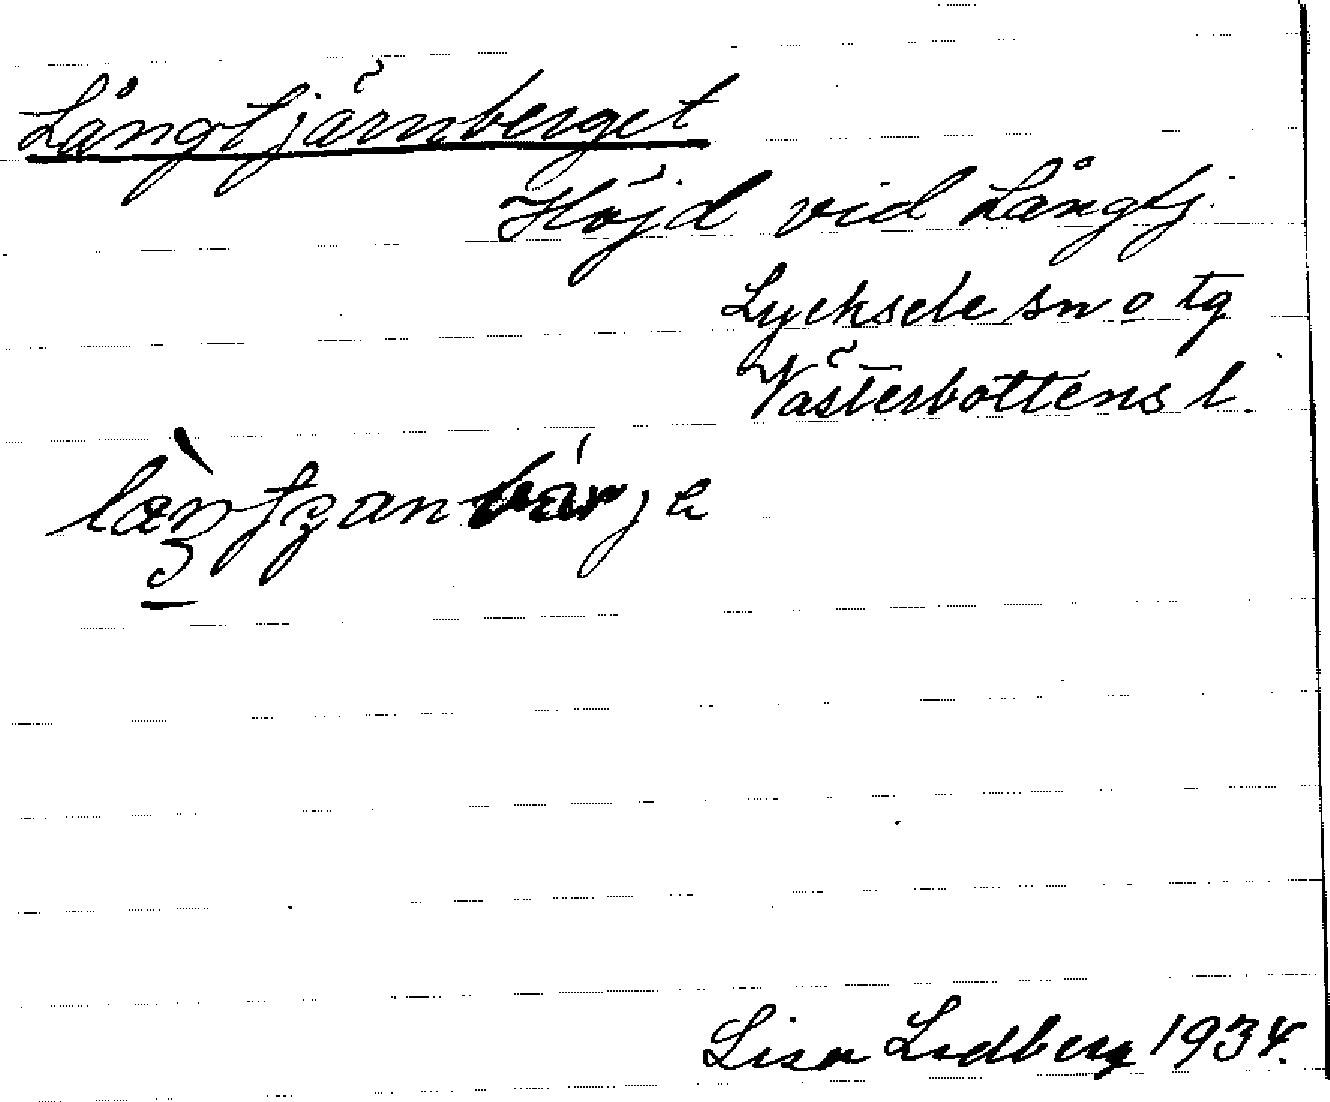 Långtjärnberget
Höjd vid Långtj.
Lycksele sn o tg
Västerbottens l.
Lisa Lidberg 1934.